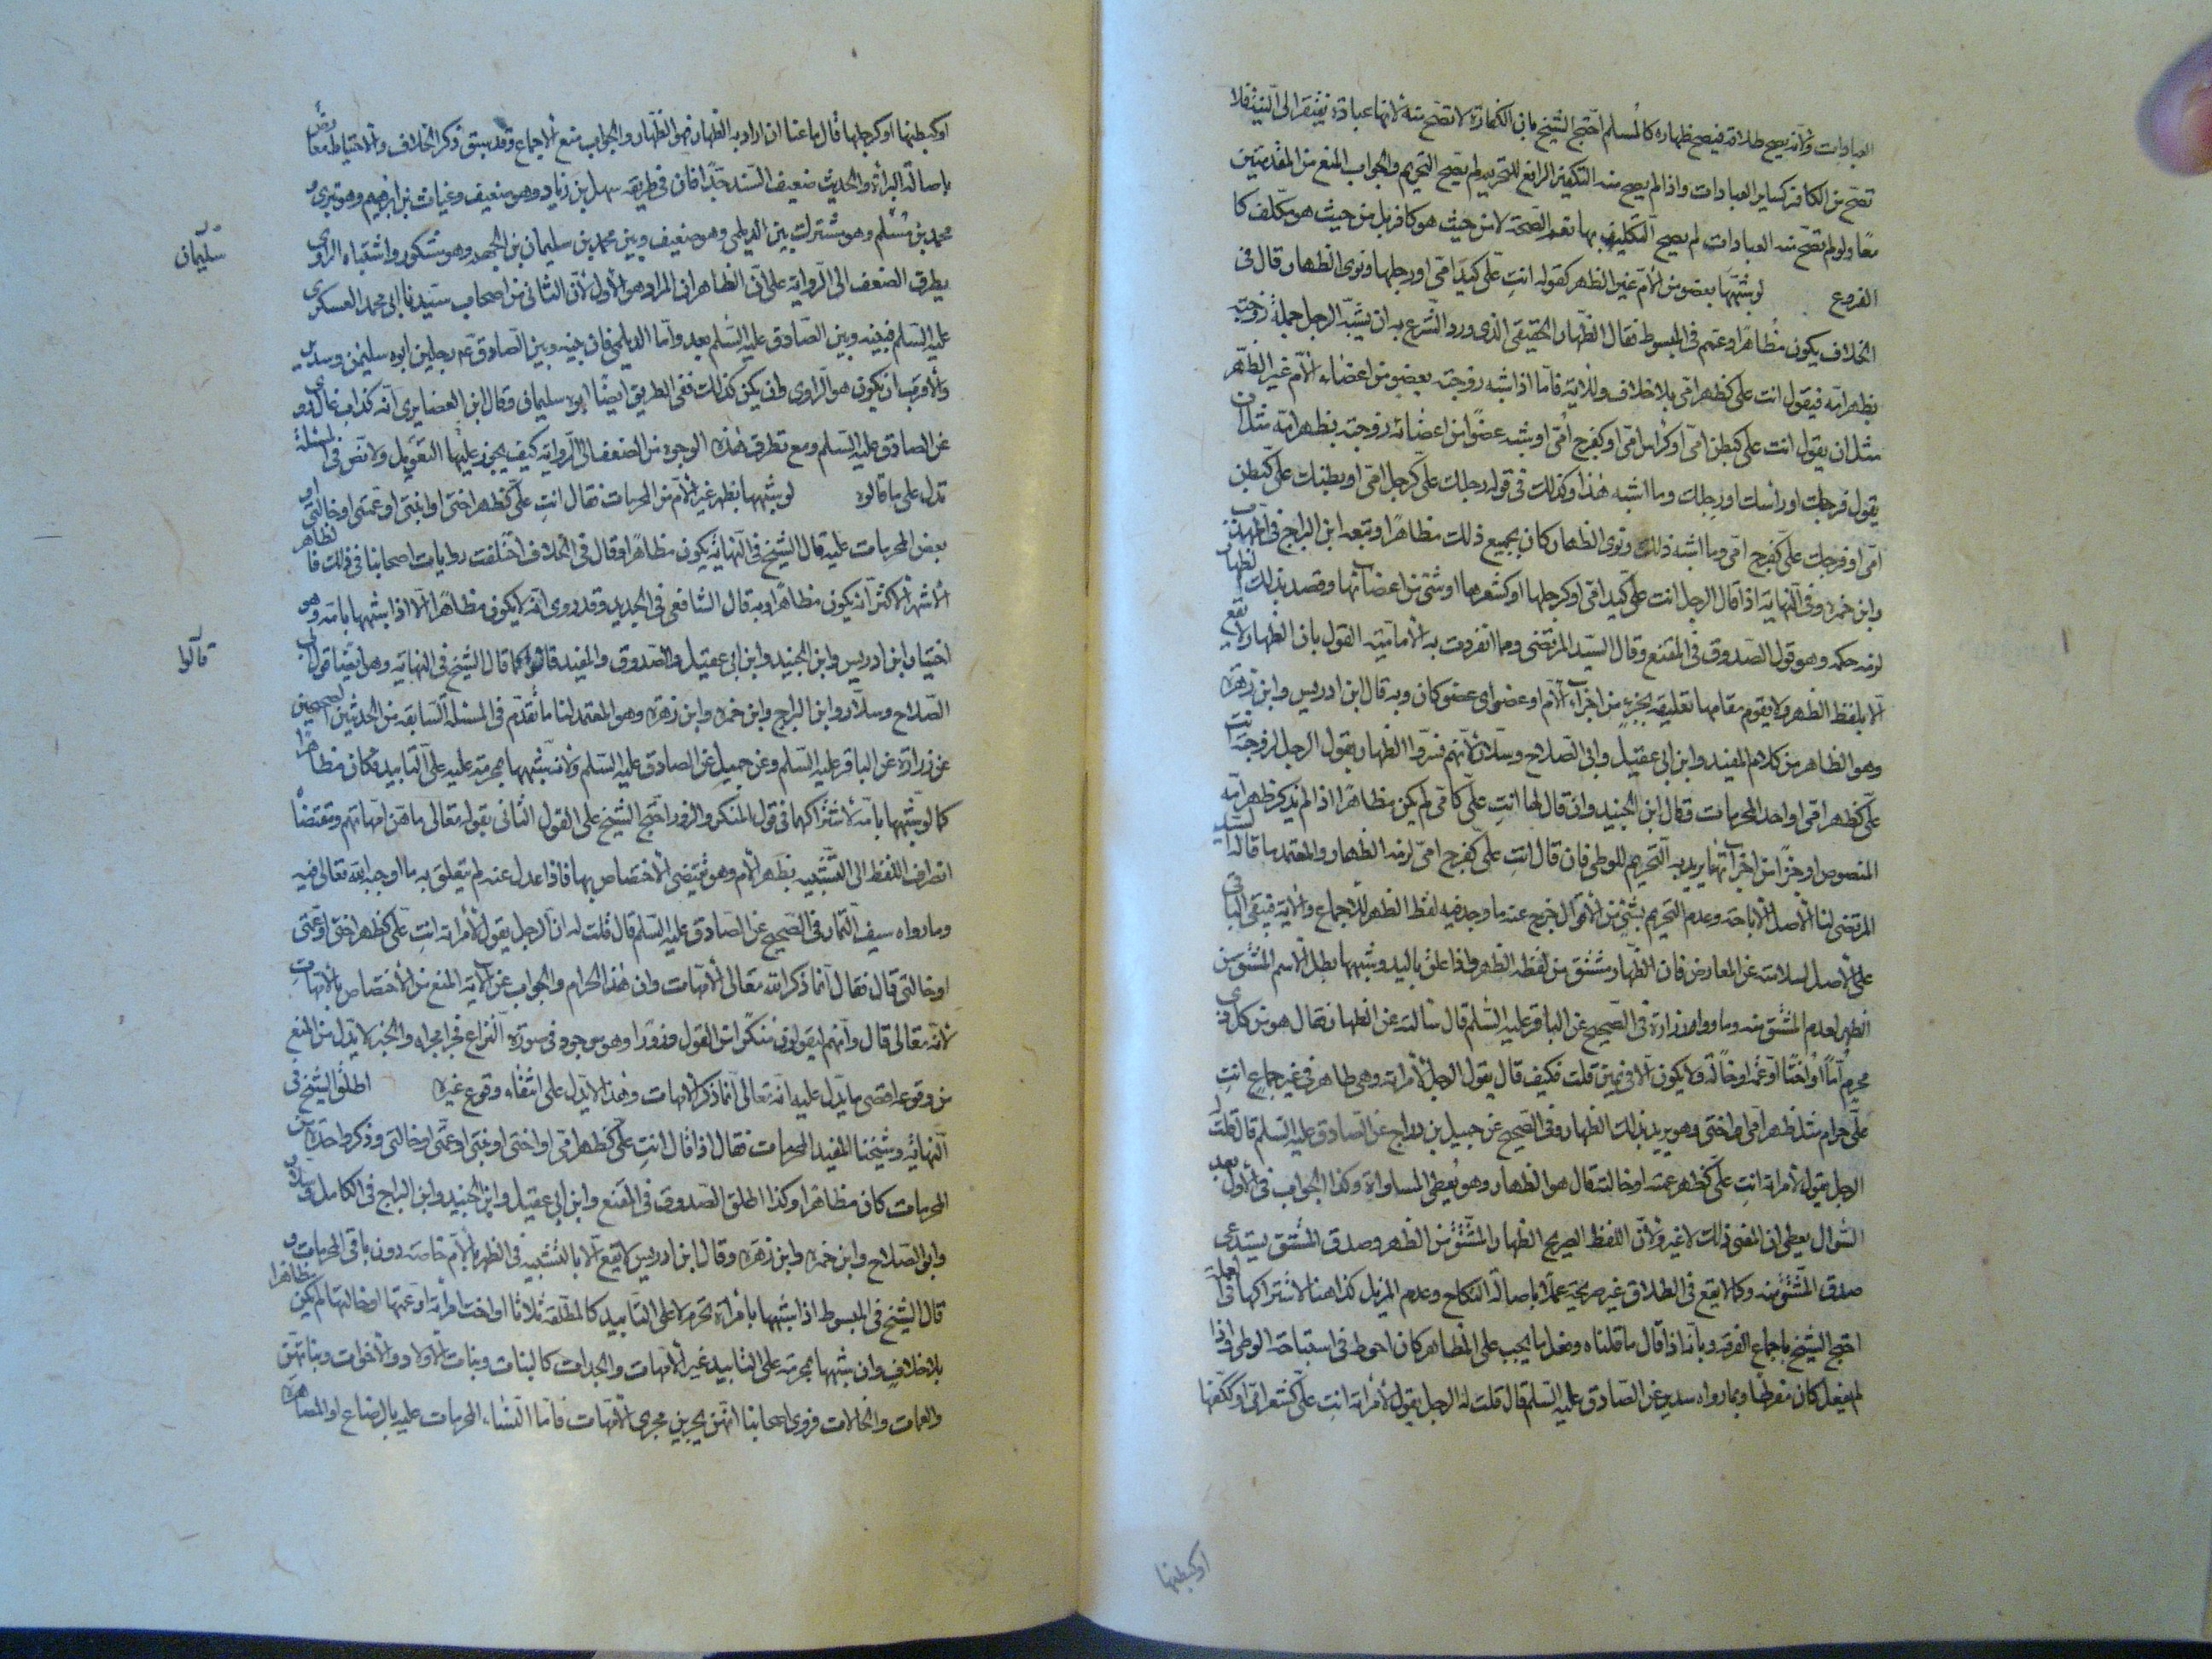 العبادات ولأنه يصح طلاقه فيصح ظهاره كالمسلم احتج الشيخ بان الكفارة لا تصح منه لانها عبادة تفتقر الى النية فلا
تصح من الكافر كساير العبادات واذا لم يصح منه التكفير الرافع للتحريم لم يصح التحريم والجواب المنع من المقدمتين
معًا ولو لم تصح منه العبادات لم يصح التكليف بها نعم الصحة لا من حيث هو كافر بل من حيث هو مكلف كما
الفروع لو شبهها بعضو من الأم غير الظهر كقوله انتِ علىّ كيد امّى او رجلها ونوى الظهار قال فى
الخلاف يكون مظاهرًا وعمم فى المبسوط فقال الظهار الحقيقى الذى ورد الشرع به ان يشبه الرجل جملة زوجته
بظهر امه فيقول انت على كظهر امى بلا خلاف وللآية فاما اذا شبه زوجته بعضو من اعضاء الأم غير الظهر
مثل ان يقول انت على كبطن امى او كراس امى او كفرج امى او شبه عضوًا من اعضائه زوجته بظهر امه مثل ان
يقول فرجك او رأسك او رجلك وما اشبه هذا وكذلك فى قوله رجلك علىّ كرجل امى او بطنك على كبطن
امى او فرجك على كفرج امى وما اشبه ذلك ونوى الظهار كان بجميع ذلك مظاهرًا وتبعه ابن البراج فى المهذب
وابن حمزه وفى النهاية اذا قال الرجل انت علىّ كيد امى او كرجلها او كشعرها او شئ من اعضائها وقصد بذلك الظهار
لزمه حكمه وهو قول الصدوق فى المقنع وقال السيد المرتضى ومما انفردت به الامامية القول بان الظهار لا يقع
الا بلفظ الظهر ولا يقوم مقامها تعليقه بجزء من اجزاء الأم او عضو اى عضو كان وبه قال ابن ادريس وابن زهره
وهو الظاهر من كلام المفيد وابن ابى عقيل وابى الصلاح وسلار لانهم فسروا الظهار بقول الرجل لزوجته انت
علىّ كظهر امى او احد المحرمات وقال ابن الجنيد وان قال لها انتِ علىّ كامّى لم يكن مظاهرًا اذا لم يذكر ظهر امه
المنصوص او جزًا من اجزائها يريد به التحريم للوطى فان قال انتِ علىّ كفرج امىّ لزمه الظهار والمعتمد ما قاله السيد
المرتضى لنا الأصل الاباحة وعدم التحريم بشئ من الأقوال خرج عنه ما وجد فيه لفظ الظهر للاجماع والاية فيبقى الباقى
على الأصل لسلامته عن المعارض فان الظهار مشتق من لفظه الظهر واذا علق باليد وشبهها بطل الاسم المشتق من
الظهر لعدم المشتق منه وما رواه زرارة فى الصحيح عن الباقر عليه السلم قال سألته عن الظهار فقال هو من كل ذى
محرم امًّا او اختًا او عمّة او خالة ولا يكون الا فى يمين قلت فكيف قال يقول الرجل لأمراته وهى طاهر فى غير جماع انتِ
علىّ حرام مثل ظهر امى او اختى وهو يريد بذلك الظهار وفى الصحيح عن جميل بن دراج عن الصادق عليه السلم قال قلت
الرجل يقول لأمراته انتِ علىّ كظهر عمته او خالته قال هو الظهار وهو يُعطى المساواة وكذا الجواب فى الأول بعد
السؤال يعطى ان المعنى ذلك لا غير ولأن اللفظ الصريح الظهار المشتق من الظهر وصدق المشتق يستدعى
صدق المشتق منه وكما لا يقع فى الطلاق غير صريحة عملا باصالة النكاح وعدم المزيل كذا هنا لاشتراكهما فى العلة
احتج الشيخ باجماع الفرقة وبانه اذا قال ما قلناه وفعل ما يجب على المظاهر كان احوط فى استباحة الوطى واذا
لم يفعل كان مفرطا وبما رواه سدير عن الصادق عليه السلم قال قلت له الرجل يقول لأمراته انتِ علىّ كشعر امى او ككفها
او كبطنها
او كبطنها او كرجلها قال ما عنا ان اراد به الظهار فهو الظهار والجواب منع الاجماع وقد سبق ذكر الخلاف والاحتياط معارض
باصالة البراة والحديث ضعيف السند جدًا فان فى طريقه سهل بن زياد وهو ضعيف وغياث بن ابرهيم وهو بترى و
محمد بن مسلم وهو مشترك بين الديلمى وهو ضعيف وبين محمد بن سليمان بن الجهم وهو مشكور واشتباه الراوى
سليمان
يطرق الضعف الى الرواية على ان الظاهر ان المراد هو الأول لأن الثانى من اصحاب سيدنا ابى محمد العسكرى
عليه السلم فبينه وبين الصادق عليه السلم بعد واما الديلمى فان بينه وبين الصادق عم رجلين ابوه سليمن وسدير
والأقرب ان يكون هو الراوى وان يكن كذلك ففى الطريق ايضًا ابوه سليمان وقال ابن الغضايرى انه كذاب غال روى
عن الصادق عليه السلم ومع تطرق هذه الوجوه من الضعف الى الرواية كيف يجوز عليها التعويل ولا نص فى المسئلة
تدل على ما قالوه لو شبهها بظهر غير الأم من المحرمات فقال انتِ علىّ كظهر اختى او ابنتى او عمتى او خالتى او
بعض المحرمات عليه قال الشيخ فى النهاية يكون مظاهرًا وقال فى الخلاف اختلفت روايات اصحابنا فى ذلك فالظاهر
الأشهر الأكثر انه يكون مظاهرًا وبه قال الشافعى فى الجديد وقد روى انه لا يكون مظاهرًا الا اذا شبهها بامه وهو
اختيار ابن ادريس وابن الجنيد وابن ابى عقيل والصدوق والمفيد قالوا كما قال الشيخ فى النهاية وهو ايضًا قول ابى
قالوا
الصلاح وسلار وابن البراج وابن حمزه وابن زهره وهو المعتمد لنا ما تقدم فى المسئلة السابقه من الحديثين الصحيحين
عن زرارة عن الباقر عليه السلم وعن جميل عن الصادق عليه السلم ولأنه شبهها بمحرمة عليه على التابيد فكان مظاهرًا
كما لو شبهها بامه لاشتراكهما فى قول المنكر والزور احتج الشيخ على القول الثانى بقوله تعالى ما هن امهاتهم ومقتضاه
انصراف اللفظ الى التشبيه بظهر الأم وهو مقتضى الأختصاص بها فاذا عدل عنه لم يتعلق به ما اوجبه الله تعالى فيه
وما رواه سيف التمار فى الصحيح عن الصادق عليه السلم قال قلت له ان الرجل يقول لأمراته انتِ علىّ كظهر اختى او عمتى
او خالتى قال فقال انما ذكر الله تعالى الامهات وان هذا الحرام والجواب عن الآية المنع من الاختصاص بالأمهات
لأنه تعالى قال وانهم ليقولون منكرًا من القول وزورًا وهو موجود فى صورة النزاع فجرا مجراه والخبر لا يدل من المنع
من وقوعه اقصى ما يدل عليه انه تعالى انما ذكر الأمهات وهذا لا يدل على انتفاء وقوع غيره اطلق الشيخ فى
النهاية وشيخنا المفيد المحرمات فقال اذا قال انتِ علىّ كظهر امى او اختى او بنتى او عمتى او خالتى وذكر واحدة من
المحرمات كان مظاهرًا وكذا اطلق الصدوق فى المقنع وابن ابى عقيل وابن الجنيد وابن البراج فى الكامل وسلار
وابو الصلاح وابن حمزه وابن زهره وقال ابن ادريس لا يقع الا بالتشبيه فى الظهر بالأم خاصه دون باقى المحرمات و
قال الشيخ فى المبسوط اذا شبهها بامرأة تحرم لا على التابيد كالمطلقة ثلاثا او اخت امراته او عمتها او خالتها لم يكن مظاهرا
بلا خلاف وان شبهها بمحرمة على التابيد غير الأمهات والجدات كالبنات وبنات الأولاد والأخوات وبناتهن
والعمات والخالات فروى اصحابنا انهن يجرين مجرى الامهات فاما النساء المحرمات عليه بالرضاع او المصاهرة